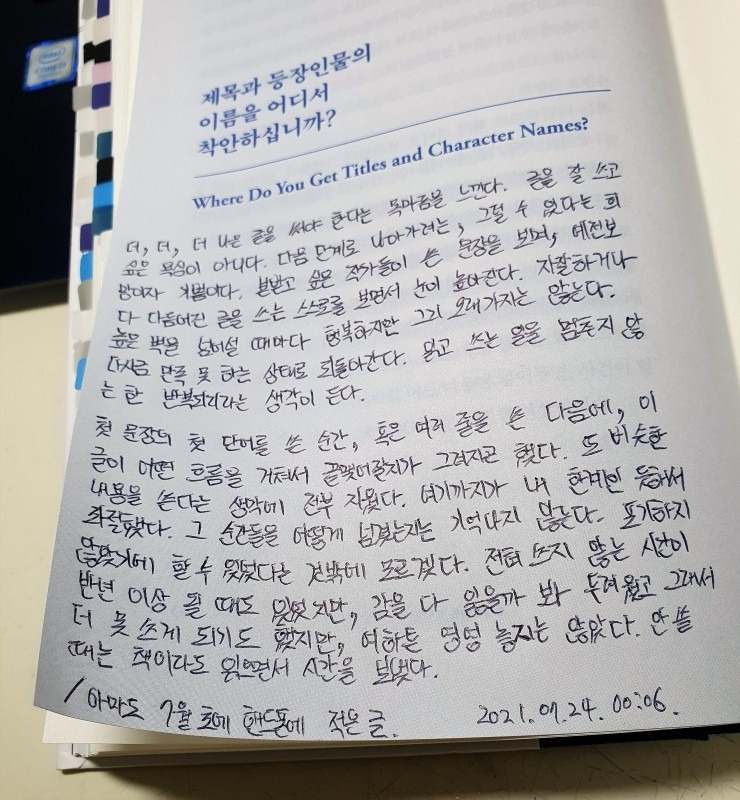 intel
제목과 등장인물의
이름을 어디서
착안하십니까?
Where Do You Get Titles and Character Names?
더, 더, 더 나은 글을 써야 한다는 목마름을 느낀다. 글을 잘 쓰고
싶은 욕심이 아니다. 다음 단계로 나아가려는, 그럴 수 있다는 희
망이자 기쁨이다. 본받고 싶은 작가들이 쓴 문장을 보며, 예전보
다 다듬어진 글을 쓰는 스스로를 보면서 눈이 높아진다. 자잘하거나
높은 벽을 넘어설 때마다 행복하지만 그리 오래가지는 않는다.
다시금 만족 못 하는 상태로 되돌아간다. 읽고 쓰는 일을 멈추지 않
는 한 반복되리라는 생각이 든다.
첫 문장의 첫 단어를 쓴 순간, 혹은 여러 줄을 쓴 다음에, 이
글이 어떤 흐름을 거쳐서 끝맺어질지가 그려지곤 했다. 또 비슷한
내용을 쓴다는 생각에 전부 지웠다. 여기까지가 내 한계인 듯해서
좌절했다. 그 순간들을 어떻게 넘겼는지는 기억나지 않는다. 포기하지
않았기에 할 수 있었다는 것밖에 모르겠다. 전혀 쓰지 않는 시간이
반년 이상 될 때도 있었지만, 감을 다 잃을까 봐 두려웠고 그래서
더 못 쓰게 되기도 했지만, 여하튼 영영 놓지는 않았다. 안 쓸
때는 책이라도 읽으면서 시간을 보냈다.
/ 아마도 7월 초에 핸드폰에 적은 글.
2021.07.24. 00:06.